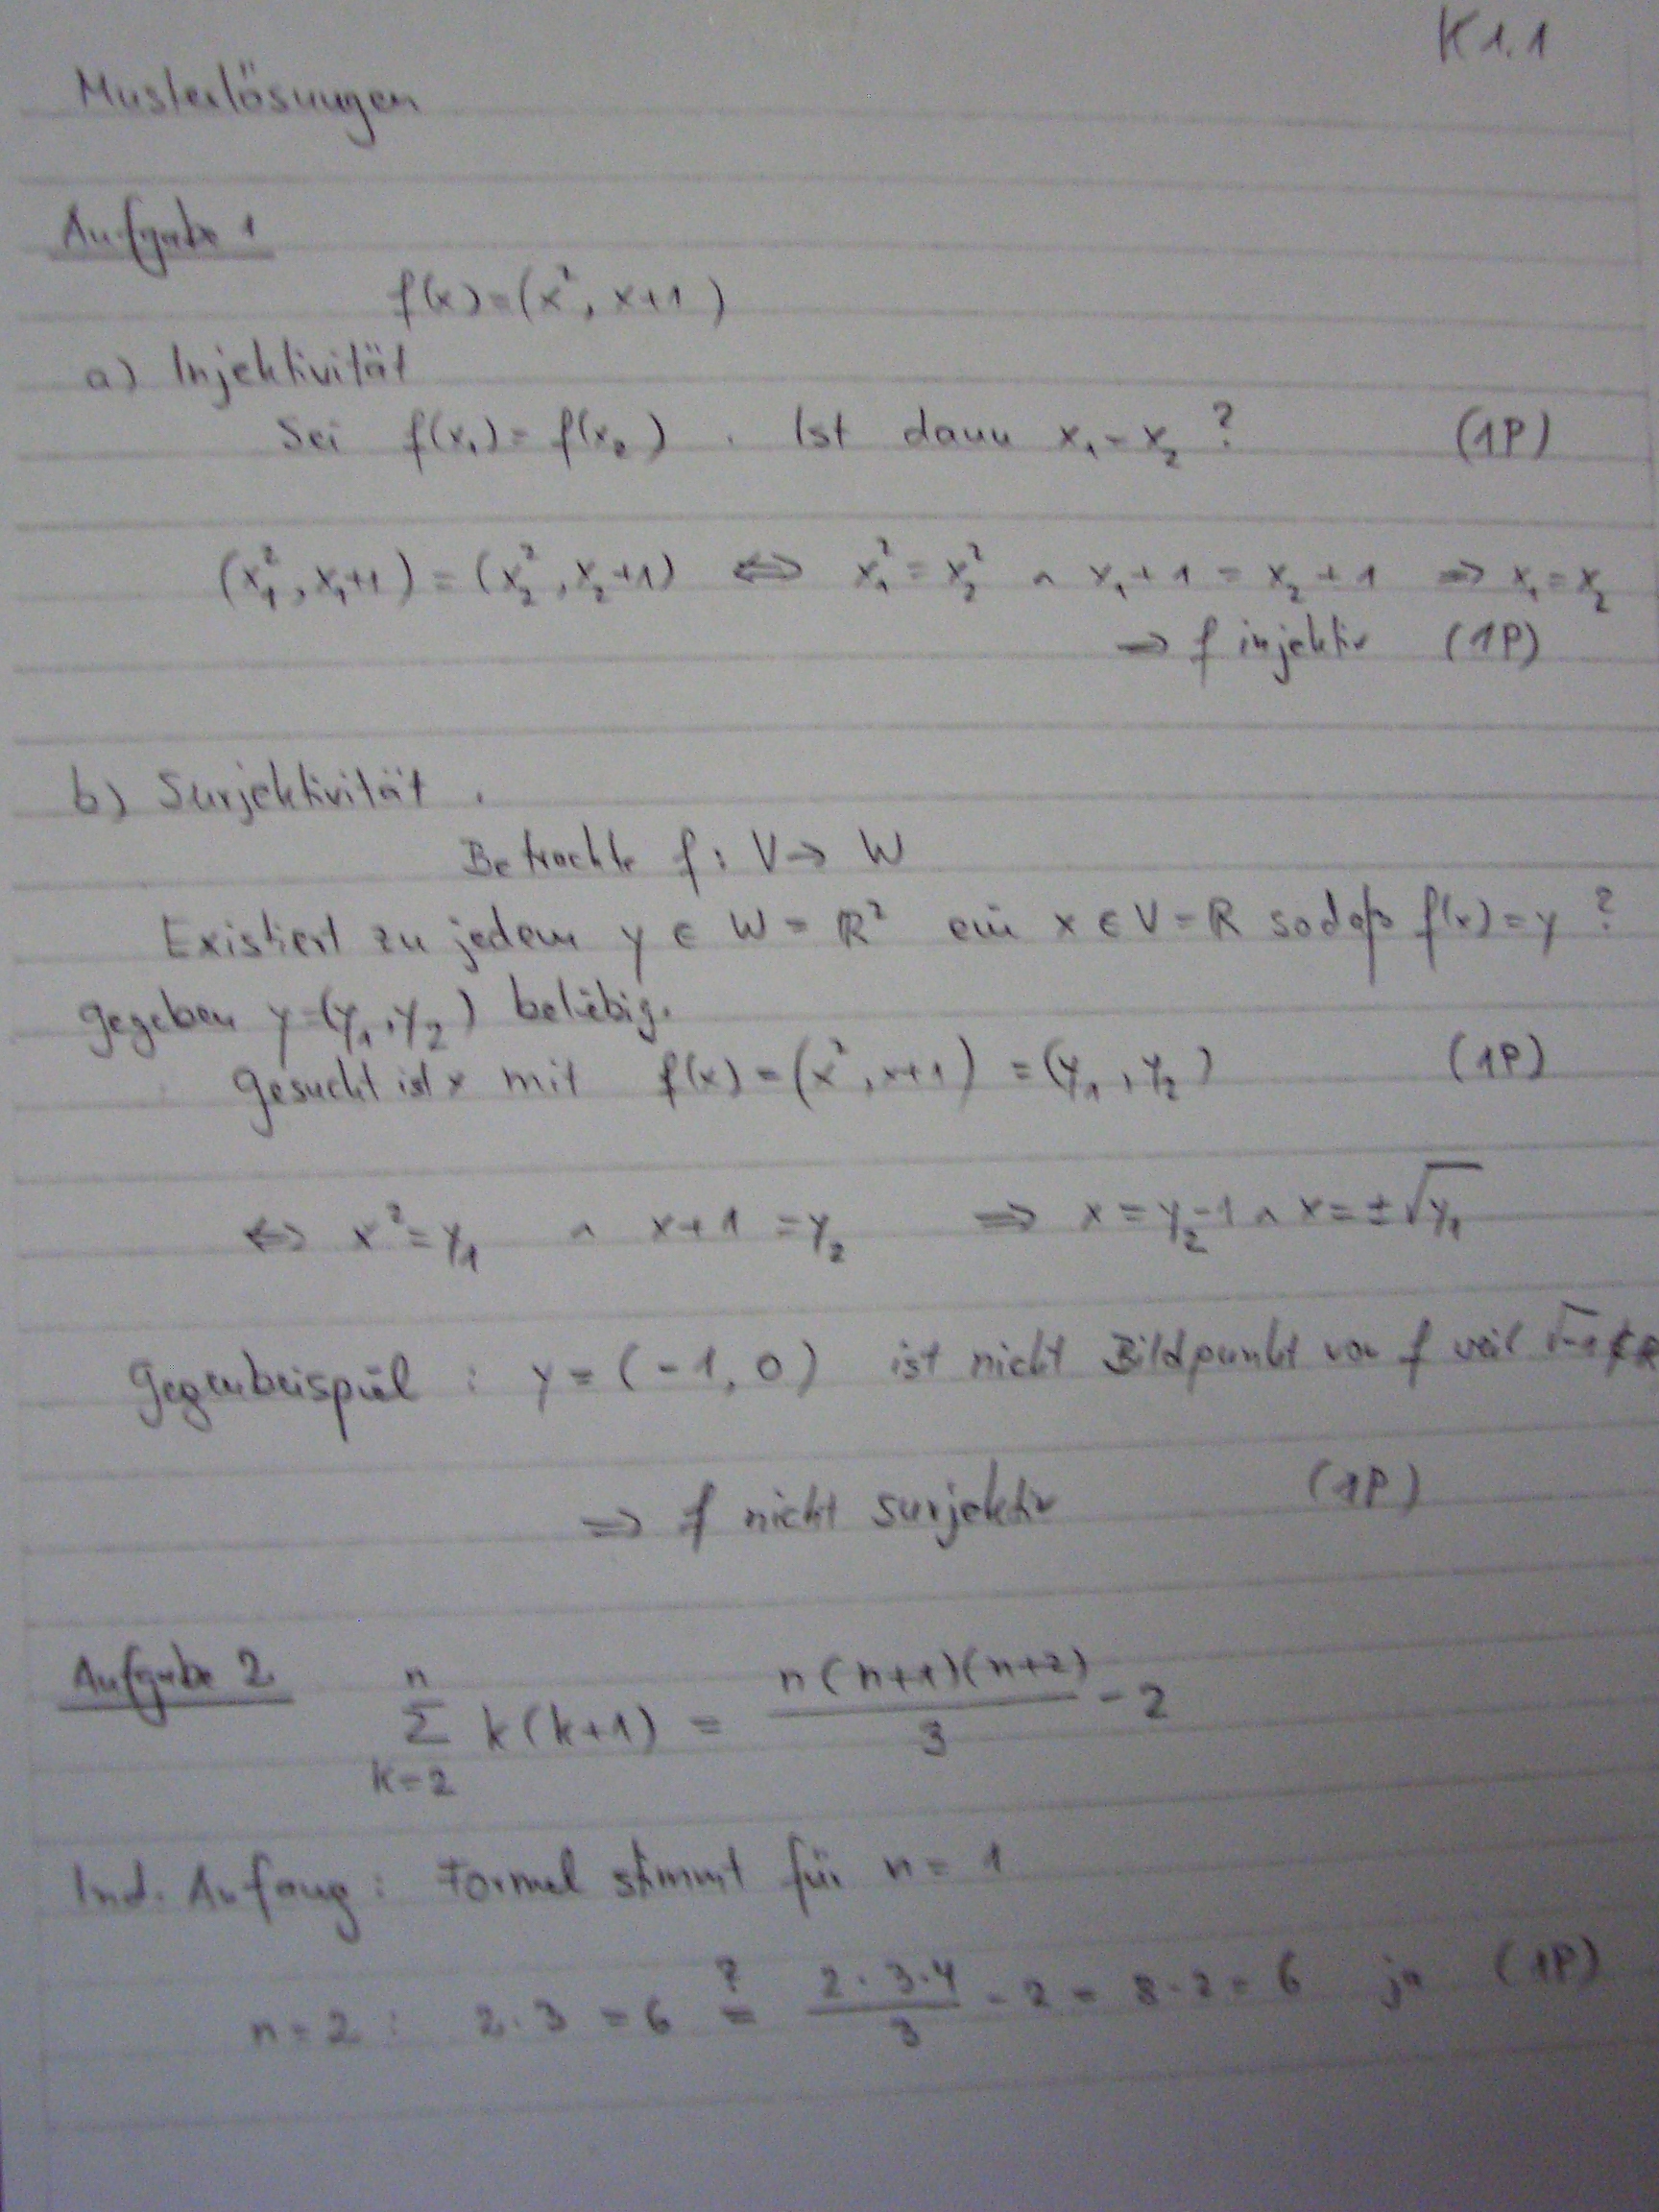 K 1.1
Musterlösungen
Aufgabe 1
f(x) = (x², x+1)
a) Injektivität
Sei f(x₁) = f(x₂) . Ist dann x₁ = x₂ ? (1P)
(x₁², x₁+1) = (x₂², x₂+1) ⇔ x₁² = x₂² ∧ x₁+1 = x₂+1 ⇒ x₁ = x₂
⇒ f injektiv (1P)
b) Surjektivität .
Betrachte f : V → W
Existiert zu jedem y ∈ W = ℝ² ein x ∈ V = ℝ sodaß f(x) = y ?
gegeben y = (y₁, y₂) beliebig.
Gesucht ist x mit f(x) = (x², x+1) = (y₁, y₂) (1P)
⇔ x² = y₁ ∧ x+1 = y₂ ⇒ x = y₂-1 ∧ x = ±√y₁
Gegenbeispiel : y = (-1, 0) ist nicht Bildpunkt von f weil √-1 ∉ ℝ
⇒ f nicht surjektiv (1P)
Aufgabe 2 ∑_{k=2}^{n} k(k+1) = n(n+1)(n+2)/3 - 2
Ind. Anfang : Formel stimmt für n = 1
n = 2 : 2·3 = 6 ?= 2·3·4/3 - 2 = 8-2 = 6 ja (1P)